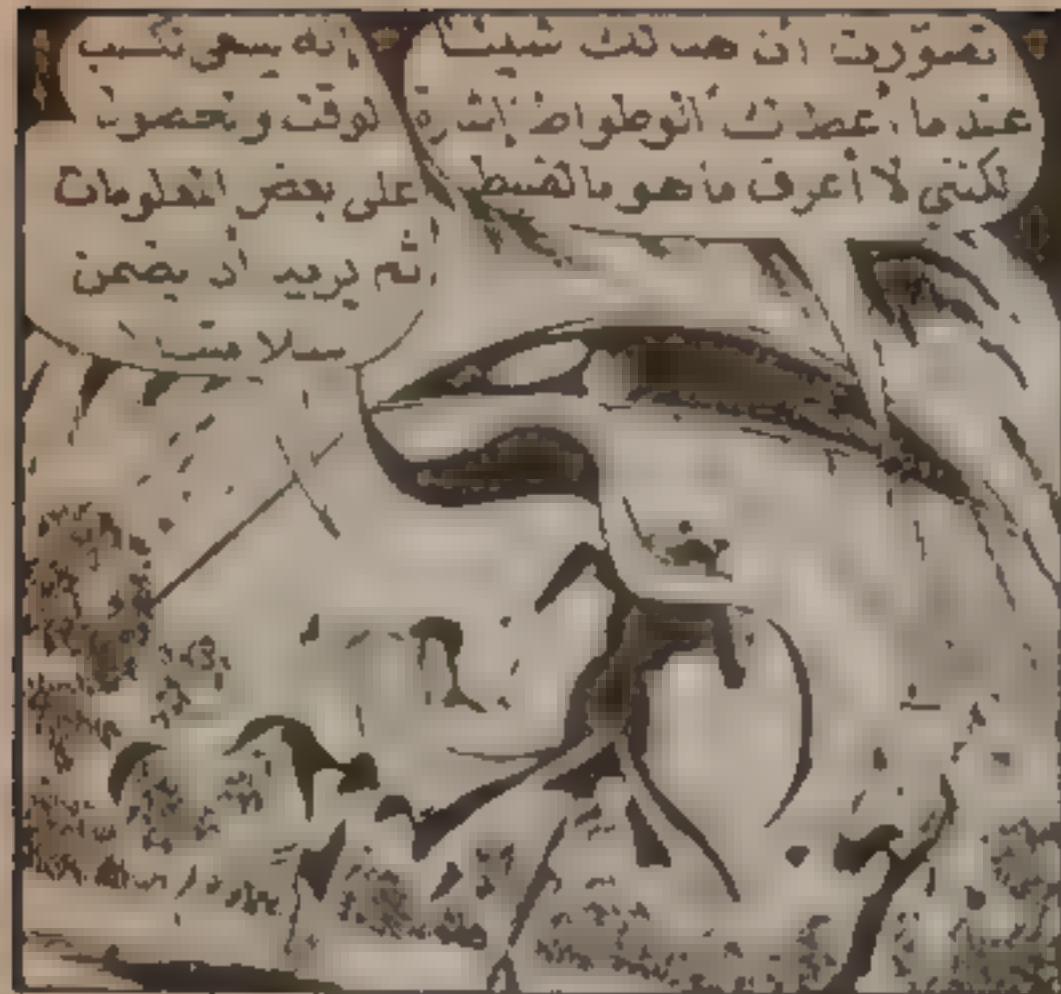 تصوّرت أن هناك شيئا
عندما أعطاك الوطواط إشارة
لكنني لا أعرف ما هو بالضبط
إنه يسعى لكسب
الوقت والحصول
على بعض المعلومات
ثم يريد أن يضمن
سلامتنا